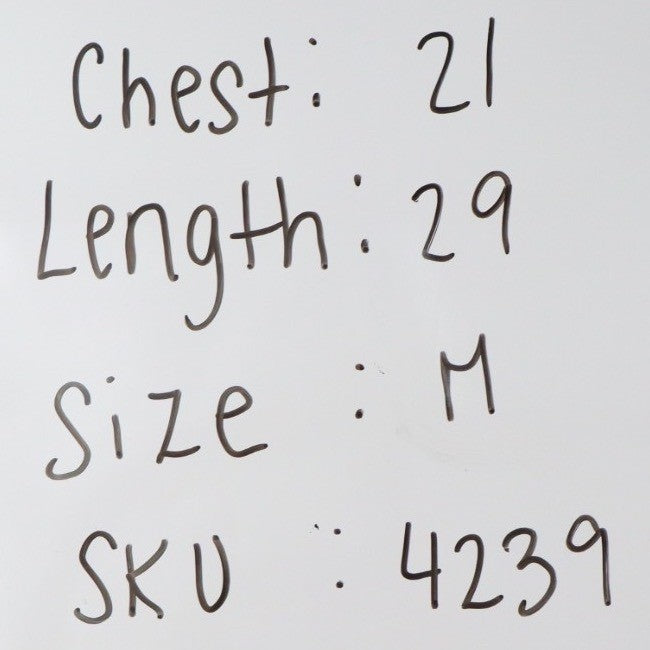 Chest: 21
Length: 29
Size : M
SKU : 4239